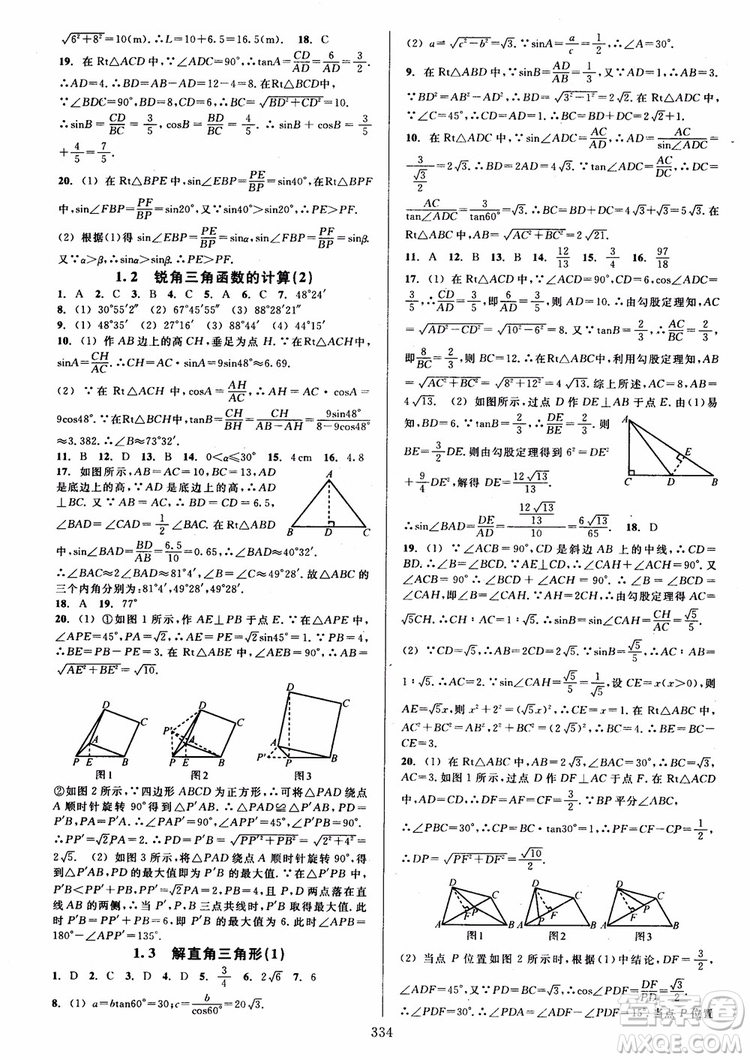 √(6²+8²)=10(m).∴L=10+6.5=16.5(m) 18. C
19. 在Rt△ACD中,∵∠ADC=90°,∴tanA=CD/AD=6/AD=3/2,
∴AD=4.∴BD=AB-AD=12-4=8.在Rt△BCD中,
∵∠BDC=90°,BD=8,CD=6,∴BC=√(BD²+CD²)=10.
∴sinB=CD/BC=3/5,cosB=BD/BC=4/5.∴sinB+cosB=3/5
+4/5=7/5.
20. (1) 在Rt△BPE中,sin∠EBP=PE/BP=sin40°,在Rt△
BPF中,sin∠FBP=PF/BP=sin20°,又∵sin40°>sin20°,
∴PE>PF.
(2) 根据题意,得sin∠EBP=PE/BP=sinα,sin∠FBP=PF/BP=sinβ.
又∵α>β,∴sinα>sinβ.∴PE>PF.
1.2 锐角三角函数的计算(2)
1. A 2. C 3. B 4. C 5. A 6. C 7. 48°24′
8. (1) 30°55′2″ (2) 67°45′55″ (3) 88°28′21″
9. (1) 48°35′ (2) 27°54′ (3) 67°54′ (4) 44°15′
10. (1) 作AB边上的高CH,垂足为点H.∵在Rt△ACH中,
sinA=CH/AC,∴CH=AC·sinA=9sin48°≈6.69.
(2) ∵在Rt△ACH中,cosA=AH/AC,∴AH=AC·cosA=
9cos48°.∴在Rt△BCH中,tanB=CH/BH=CH/(AB-AH)=9sin48°/(8-9cos48°)
≈3.382.∴∠B≈73°32′.
11. B 12. D 13. B 14. 0<α≤30° 15. 4cm 16. 4.8
17. 如图所示,AB=AC=10,BC=13,AD
是底边上的高,∵AD是底边上的高,∴AD
⊥BC.又∵AB=AC,∴BD=CD=6.5,
∠BAD=∠CAD=1/2∠BAC.在Rt△ABD
中,sin∠BAD=BD/AB=6.5/10=0.65,∴∠BAD≈40°32′.
∴∠BAC≈2∠BAD≈81°4′,∠B=∠C≈49°28′.故这个三角形的
三个内角分别为81°4′,49°28′,49°28′.
A
B
D
C
18. A 19. 77°
20. (1) ①如图1所示,作AE⊥PB于点E.∵在△APE中,
∠APE=45°,PA=√2,∴AE=PE=√2sin45°=1.∵PB=4,
∴BE=PB-PE=3.∵在Rt△ABE中,∠AEB=90°,∴AB=
√(AE²+BE²)=√10.
D
C
A
P E B
图1
D
C
P′
A
P E B
图2
D
C
P′
A
P
B
图3
②如图2所示,∵四边形ABCD为正方形,∴可将△PAD绕点
A顺时针旋转90°得到△P′AB.∴△PAD≌△P′AB.∴PD=
P′B,PA=P′A.∴∠PAP′=90°,∠APP′=45°,∠P′PB=
90°.∴PP′=√2PA=2.∴PD=P′B=√(PP′²+PB²)=√(2²+4²)=
2√5. (2) 如图3所示,将△PAD绕点A顺时针旋转90°得到
△P′AB,PD的最大值即为P′B的最大值.∵在△P′PB中,
P′B<PP′+PB,PP′=√2PA=2,PB=4,且P、D两点落在直
线AB的两侧,∴当P′、P、B三点共线时,P′B取得最大值.此
时P′B=PP′+PB=6,即P′B的最大值为6.此时∠APB=
180°-∠APP′=135°.
1.3 解直角三角形(1)
1. D 2. C 3. D 4. C 5. 3/4 6. 2√6 7. 6
8. (1) a=btan60°=10√3,c=b/cos60°=20√3.
(2) a=√(c²-b²)=√3.∵sinA=a/c=1/2,∴∠A=30°.
9. 在Rt△ABD中,∵sinB=AD/AB=1/3,AD=1,∴AB=3.
∵BD²=AB²-AD²,∴BD=√(3²-1²)=2√2.在Rt△ADC中,
∵∠C=45°,∴CD=AD=1.∴BC=BD+CD=2√2+1
10. 在Rt△ADC中,∵sin∠ADC=AC/AD,∴AD=AC/sin∠ADC=
3/(√3/2)=2√3.∴BD=2AD=4√3.∵tan∠ADC=AC/DC,∴DC=
AC/tan∠ADC=3/tan60°=√3.∴BC=BD+DC=5√3.在Rt△ABC中,
AB=√(AC²+BC²)=2√21.
11. A 12. A 13. B 14. 12/13 15. √3/4 16. 97/18
17. (1) 在Rt△ACD中,∵∠C=90°,AD=10,sin∠ADC=CD/AD=
3/5,∴CD/10=3/5,解得CD=6.∴由勾股定理知,AC=
√(AD²-CD²)=√(10²-6²)=8.又∵tanB=2/3,∴AC/BC=2/3,
即8/BC=2/3.∴BC=12.在Rt△ABC中,利用勾股定理知,AB=
√(AC²+BC²)=√(8²+12²)=4√13.综上所述,AC=8,AB=
4√13. (2) 如图所示,过点D作DE⊥AB于点E.由(1)易
知,BD=6.∵tanB=2/3,∴DE/BE=2/3,则
BE=3/2DE.∴由勾股定理得到6²=DE²
+9/4DE²,解得DE=12√13/13.
A
E
C D B
∴sin∠BAD=DE/AD=(12√13/13)/10=6√13/65. 18. D
19. (1) ∵∠ACB=90°,CD是斜边AB上的中线,∴CD=
BD.∴∠B=∠BCD.∵AE⊥CD,∴∠CAH+∠ACH=90°.又
∵∠ACB=90°,∴∠B=∠CAH.∵AH=2CH,∴由勾股定理得AC=
√5CH.∴sinB=sin∠CAH=CH/AC=√5/5.
(2) ∵CD=√5,∴AB=2√5.∵sinB=√5/5,∴AC=AB·sinB=
2√5×√5/5=2.∵sin∠CAH=sinB=√5/5,设CE=x(x>0),则
AE=√5x,则x²+2²=(√5x)²,∴CE=x=1.在Rt△ABC中,
AC²+BC²=AB²,2²+BC²=(2√5)²,∴BC=4.∴BE=BC-
CE=3.
20. (1) 在△ABC中,∵AB=2√3,∠ABC=60°,∴BC=√3,
AC=3.如图1所示,过点D作DF⊥AC于点F.∵AD=CD,
∠ADC=90°,∴DF=AF=CF=3/2.∵BP平分∠ABC,
∴∠PBC=30°,∴CP=BC·tan30°=1,∴PF=1/2,
∴DP=√(PF²+DF²)=√10/2.
D
C
F
P
A B
图1
D
C
P
F
A B
图2
D
C
P
A B
图3
(2) 当点P位置如图2所示时,根据(1)中结论,DF=3/2,
∠ADF=45°.又∵PD=BC=√3,∴cos∠PDF=DF/PD=√3/2.
∴∠PDF=30°.∴∠PDA=∠ADF-∠PDF=15°.当点P位置
334
答案圈
MXQE.COM